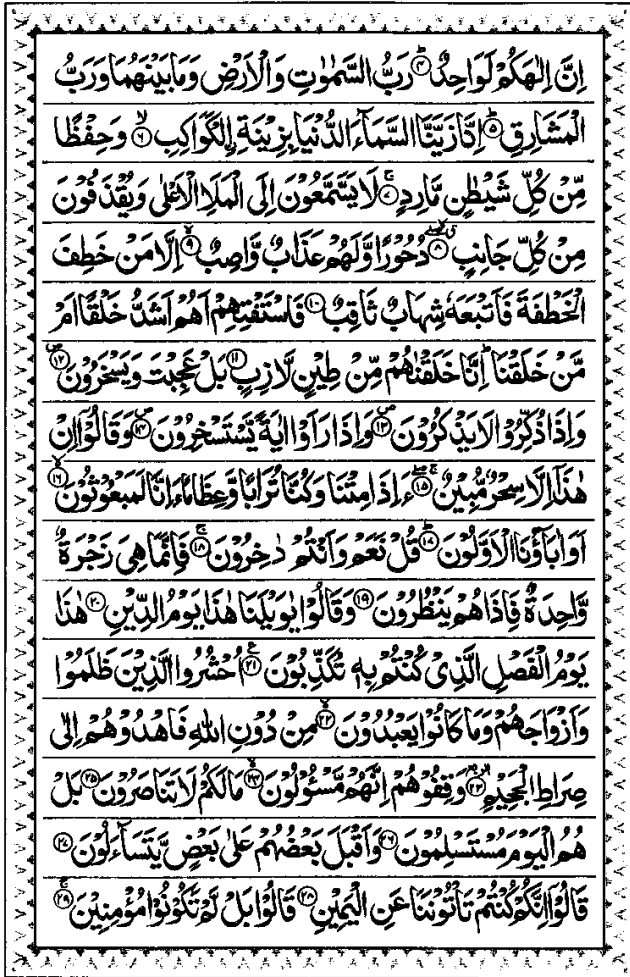 اِنَّ اِلٰهَكُمْ لَوَاحِدٌ ؕ﴿۴﴾ رَبُّ السَّمٰوٰتِ وَالْاَرْضِ وَمَا بَيْنَهُمَا وَرَبُّ
الْمَشَارِقِ ؕ﴿۵﴾ اِنَّا زَيَّنَّا السَّمَآءَ الدُّنْيَا بِزِيْنَةِ اِۨلْكَوَاكِبِ ۙ﴿۶﴾ وَحِفْظًا
مِّنْ كُلِّ شَيْطٰنٍ مَّارِدٍ ۚ﴿۷﴾ لَا يَسَّمَّعُوْنَ اِلَى الْمَلَاِ الْاَعْلٰى وَيُقْذَفُوْنَ
مِنْ كُلِّ جَانِبٍ ۖ﴿۸﴾ دُحُوْرًا وَّلَهُمْ عَذَابٌ وَّاصِبٌ ۙ﴿۹﴾ اِلَّا مَنْ خَطِفَ
الْخَطْفَةَ فَاَتْبَعَهٗ شِهَابٌ ثَاقِبٌ ﴿۱۰﴾ فَاسْتَفْتِهِمْ اَهُمْ اَشَدُّ خَلْقًا اَمْ
مَّنْ خَلَقْنَا ؕ اِنَّا خَلَقْنٰهُمْ مِّنْ طِيْنٍ لَّازِبٍ ﴿۱۱﴾ بَلْ عَجِبْتَ وَيَسْخَرُوْنَ ۪﴿۱۲﴾
وَاِذَا ذُكِّرُوْا لَا يَذْكُرُوْنَ ۪﴿۱۳﴾ وَاِذَا رَاَوْا اٰيَةً يَّسْتَسْخِرُوْنَ ۪﴿۱۴﴾ وَقَالُوْۤا اِنْ
هٰذَاۤ اِلَّا سِحْرٌ مُّبِيْنٌ ۚۖ﴿۱۵﴾ ءَاِذَا مِتْنَا وَكُنَّا تُرَابًا وَّعِظَامًا ءَاِنَّا لَمَبْعُوْثُوْنَ ۙ﴿۱۶﴾
اَوَاٰبَآؤُنَا الْاَوَّلُوْنَ ؕ﴿۱۷﴾ قُلْ نَعَمْ وَاَنْتُمْ دٰخِرُوْنَ ۚ﴿۱۸﴾ فَاِنَّمَا هِيَ زَجْرَةٌ
وَّاحِدَةٌ فَاِذَا هُمْ يَنْظُرُوْنَ ﴿۱۹﴾ وَقَالُوْا يٰوَيْلَنَا هٰذَا يَوْمُ الدِّيْنِ ﴿۲۰﴾ هٰذَا
يَوْمُ الْفَصْلِ الَّذِيْ كُنْتُمْ بِهٖ تُكَذِّبُوْنَ ﴿۲۱﴾ اُحْشُرُوا الَّذِيْنَ ظَلَمُوْا
وَاَزْوَاجَهُمْ وَمَا كَانُوْا يَعْبُدُوْنَ ۙ﴿۲۲﴾ مِنْ دُوْنِ اللّٰهِ فَاهْدُوْهُمْ اِلٰى
صِرَاطِ الْجَحِيْمِ ﴿۲۳﴾ وَقِفُوْهُمْ اِنَّهُمْ مَّسْـُٔوْلُوْنَ ۙ﴿۲۴﴾ مَا لَكُمْ لَا تَنَاصَرُوْنَ ﴿۲۵﴾ بَلْ
هُمُ الْيَوْمَ مُسْتَسْلِمُوْنَ ﴿۲۶﴾ وَاَقْبَلَ بَعْضُهُمْ عَلٰى بَعْضٍ يَّتَسَآءَلُوْنَ ﴿۲۷﴾
قَالُوْۤا اِنَّكُمْ كُنْتُمْ تَاْتُوْنَنَا عَنِ الْيَمِيْنِ ﴿۲۸﴾ قَالُوْا بَلْ لَّمْ تَكُوْنُوْا مُؤْمِنِيْنَ ۚ﴿۲۹﴾